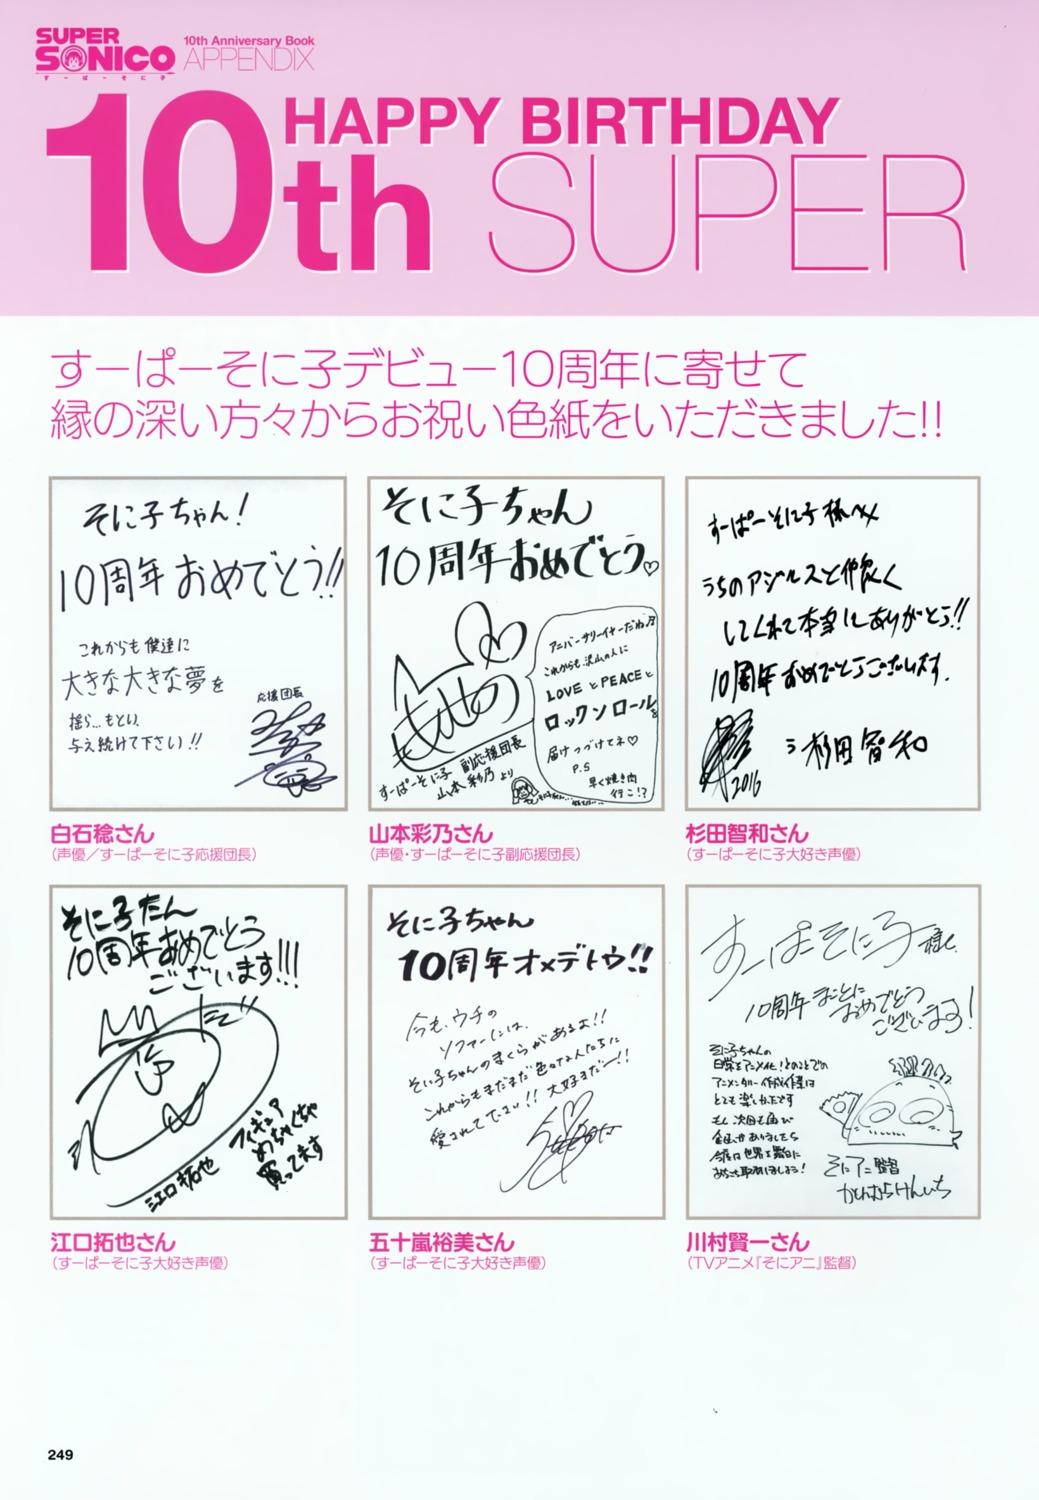 SUPER
SONICO
すーぱーそに子
10th Anniversary Book
APPENDIX
10th
HAPPY BIRTHDAY
SUPER
すーぱーそに子デビュー10周年に寄せて
縁の深い方々からお祝い色紙をいただきました!!
そに子ちゃん!
10周年おめでとう!!
これからも僕達に
大きな大きな夢を
揺ら…もとい、
与え続けて下さい!!
応援団長
白石稔さん
(声優/すーぱーそに子応援団長)
そに子ちゃん
10周年おめでとう♡
アニバーサリーイヤーだね♬
これからも沢山の人に
LOVEとPEACEと
ロックンロールを
届けつづけてネ♡
P.S
早く焼き肉
行こ!?
すーぱーそに子 副応援団長
山本彩乃より
山本彩乃さん
(声優・すーぱーそに子副応援団長)
すーぱーそに子様へ
うちのアジルスと仲良く
してくれて本当にありがとう!!
10周年おめでとうございます.
2016
杉田智和
杉田智和さん
(すーぱーそに子大好き声優)
そに子たん
10周年おめでとう
ございます!!!
だ!!
フィギュア
めちゃくちゃ
買ってます
江口拓也
江口拓也さん
(すーぱーそに子大好き声優)
そに子ちゃん
10周年オメデトウ!!
今も、ウチの
ソファーには、
そに子ちゃんのまくらがあるよ!!
これからもまだまだ色々な人たちに
愛されてて下さい!! 大好きだー!!
五十嵐裕美さん
(すーぱーそに子大好き声優)
すーぱーそに子様
10周年まことに
おめでとう
ございます!
そに子ちゃんの
日常をアニメ化!とのことでの
アニメンタリー作成作業は
とても楽しかったです
もし次回も再び
今度は世界を舞台に
そにアニ監督
かわむらけんいち
川村賢一さん
(TVアニメ『そにアニ』監督)
249